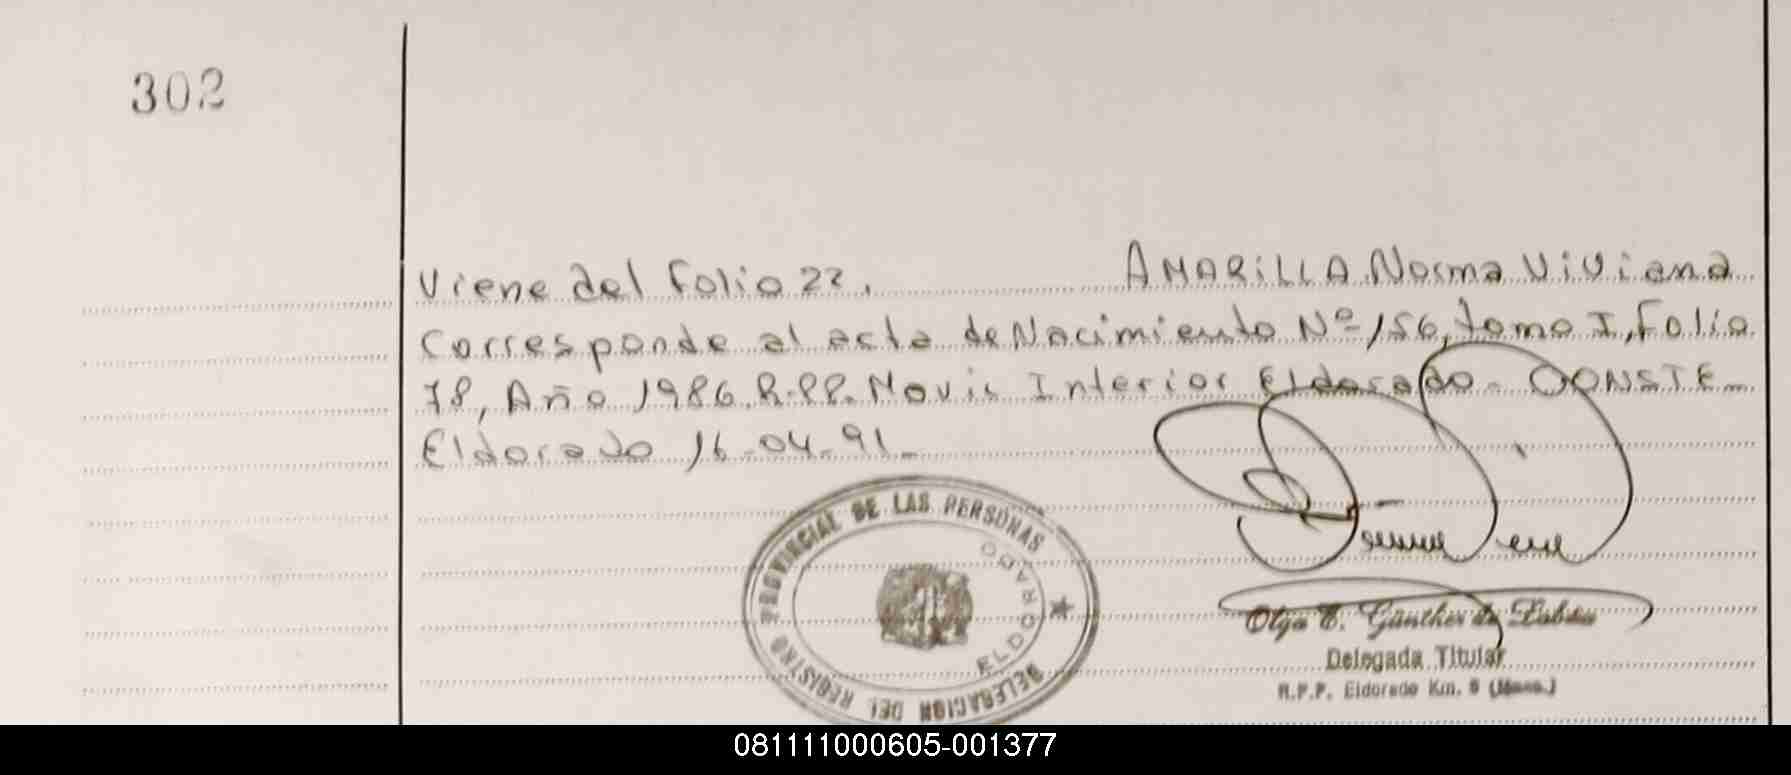 302
Viene del Folio 22. AMARILLA Norma Viviana
Corresponde al acta de Nacimiento Nº 156, tomo I, Folio
78, Año 1986. R.PP. Movil Interior Eldorado - CONSTE
Eldorado 16-04-91-
DELEGACION DEL REGISTRO PROVINCIAL DE LAS PERSONAS
ELDORADO
Olga E. Günther de
Delegada Titular
R.P.P. Eldorado Km. 9 (Mnes.)
081111000605-001377